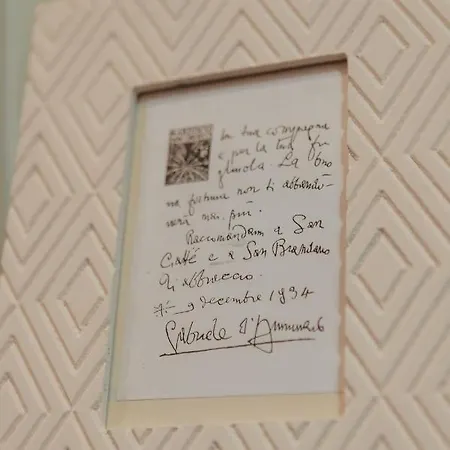 la tua compagna
e per la tua fi
gliuola. La buo
na fortuna non ti abbando
nerà mai più.
Raccomandami a San
Caffè e a San Bramitano
Ti abbraccio.
9 decembre 1934
Gabriele d'Annunzio